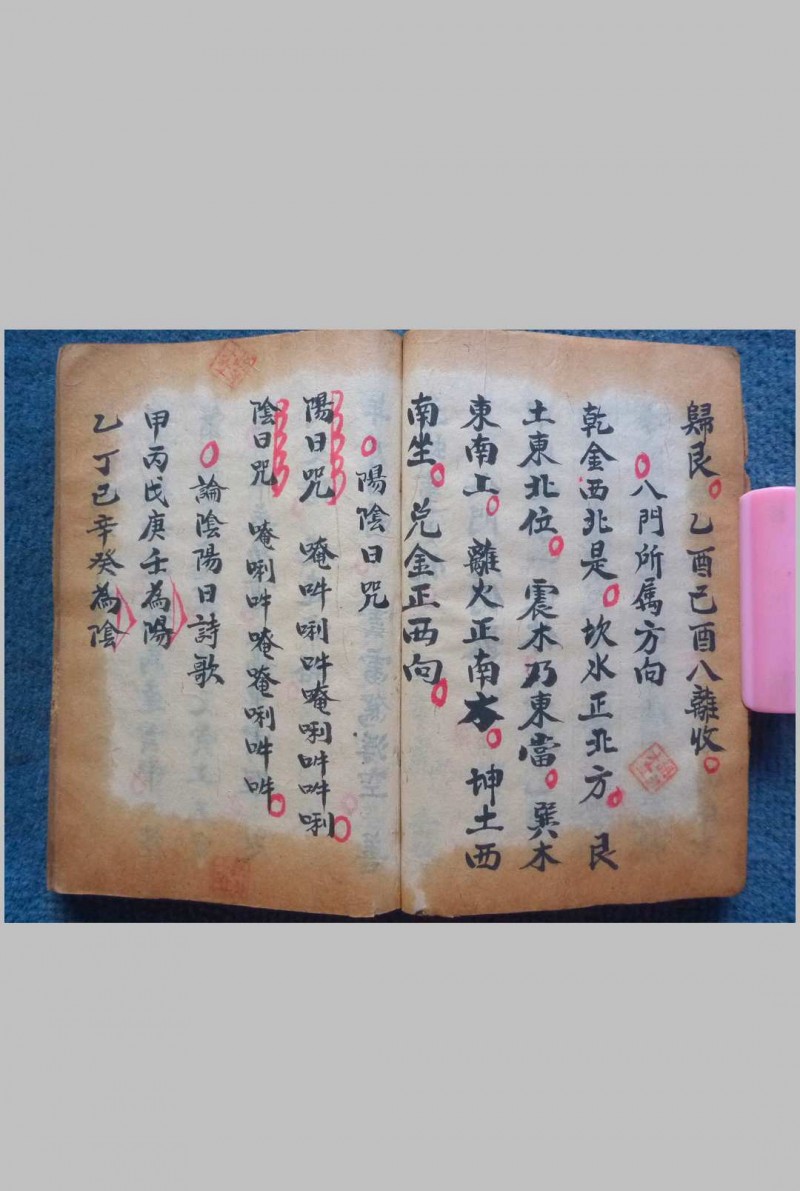 歸艮。乙酉己酉八離收。
○八門所属方向
乾金西北是。坎水正北方。艮
土東北位。震木乃東當。巽木
東南上。離火正南本。坤土西
南坐。兑金正西向。
○陽陰日咒
陽日咒 唵吽唎吽唵唎吽吽唎。
陰日咒 唵唎吽唵唵唎吽吽。
○論陰陽日詩歌
甲丙戊庚壬為陽
乙丁己辛癸為陰